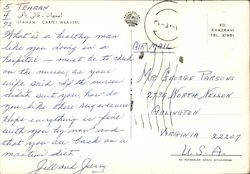 5 TEHRAN
4
72
اصفهان - قالی بافی
ISFAHAN - CARPET WEAVERS
What is a healthy man
like you doing in a
hospital - must be to check
on the nurses, as your
wife said. If the nurses
didn't suit you, how do
you like these rug weavers
Hope everything is fine
with you by now and
that you are back on a
martini diet.
Jill and Jerry
AIR MAIL
KD.
KHAZRAYI
TEL. 37491
MR GEORGE PARSONS
2736 NORTH NELSON
ARLINGTON
VIRGINIA 22207
U.S.A.